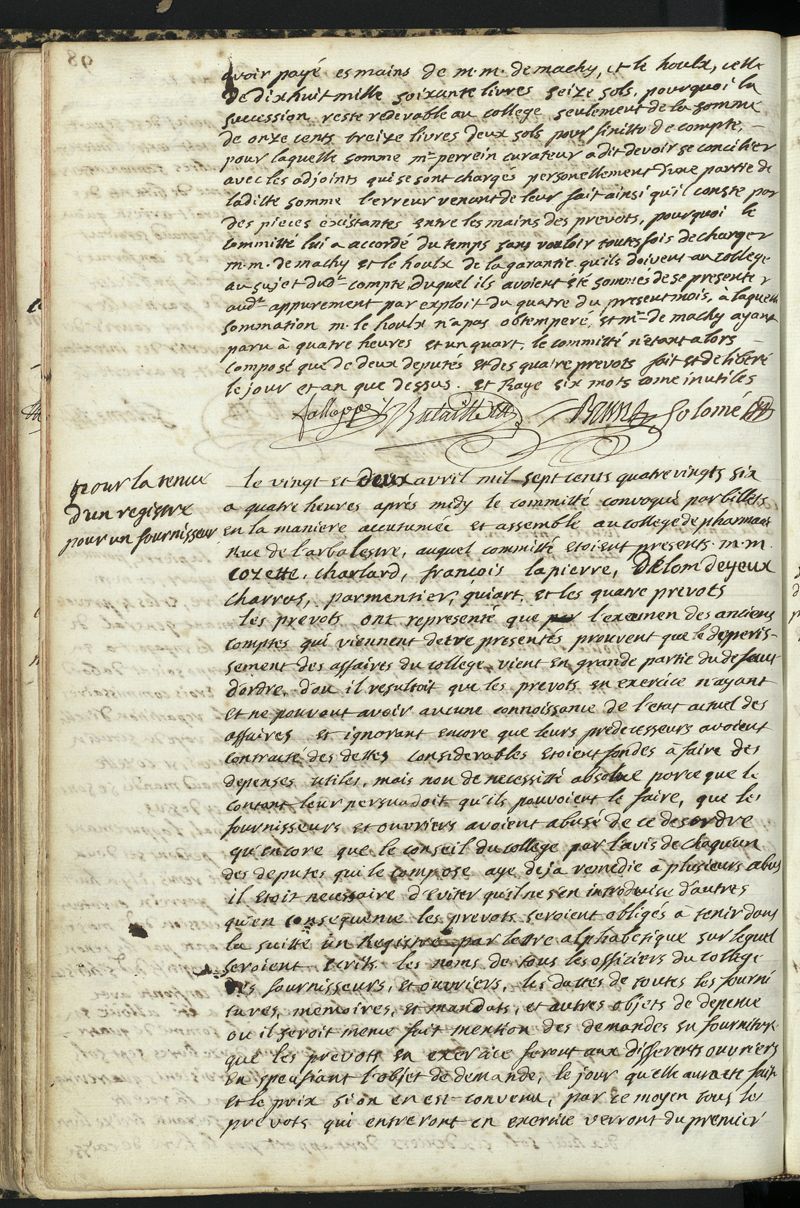 98
avoir payé es mains de m.m. demachy, et le houlx, cette
de dixhuit mille soixante livres seize sols, pourquoi la
succession reste redevable au college seulement de la somme
de onze cents treize livres deux sols pour finitto de compte,
pour laquelle somme mr perrein curateur a dit devoir se concilier
avec les adjoints qui se sont chargés personellement d'une partie de
laditte somme l'erreur venant de leur fait ainsi qu'il conste par
des pieces existantes entre les mains des prevots, pourquoi le
committé lui a accordé du temps sans vouloir toutesfois decharger
m.m. demachy et le houlx de la garantie qu'ils doivent au college
au sujet dudt compte duquel ils avoient eté sommés de se presenter
audt appurement par exploit du quatre du present mois, à laquelle
sommation m. le houlx n'a pas obtemperé, et mr demachy ayant
paru à quatre heures et un quart, le committé n'etant alors
composé que de deux deputés et des quatre prevots fait et deliberé
le jour et an que dessus. et Rayé six mots come inutiles
Bataille Brun Solomé
pour la tenue
d'un registre
pour un fournisseur
le vingt et deux avril mil sept cents quatre vingts six
a quatre heures aprés midy le committé convoqué par billets
en la maniere accutumée et assemblé au college de pharmacie
Rue de l'arbalestre, auquel committé etoient presents m.m.
cozette, charlard, françois lapierre, Delom deyeux
charras, parmentier, quiart, et les quatre prevots
les prevots ont representé que par l'examen des anciens
comptes qui viennent detre presentés prouvent que le depperis-
sement des affaires du college, vient en grande partie du defaut
d'ordre, d'ou il resultoit que les prevots en exercice n'ayant
et ne pouvant avoir aucune connoissance de l'etat actuel des
affaires et ignorant encore que leurs predecesseurs avoient
contracté des dettes considerables etoient fondés à faire des
depenses utiles, mais non de necessité absolue parce que le
contant leur persuadoit qu'ils pouvoient le faire, que les
fournisseurs et ouvriers avoient abusé de ce desordre
qu'encore que le conseil du college par l'avis de chaqu'un
des deputés qui le compose aye deja remedié à plusieurs abus
il etoit necessaire d'eviter qu'il ne s'en introduise d'autres
qu'en consequence les prevots seroient obligés à tenir dans
la suitte un Registre par lettre alphabetique sur lequel
seroient ecrits les noms de tous les offiziers du college
des fournisseurs, et ouvriers, les dattes de toutes les fourni
tures, memoires, et mandats, et autres objets de depense
ou il seroit meme fait mention des demandes en fourniture
que les prevots en exercice feront aux differents ouvriers
en specifiant l'objet de demande, le jour qu'elle aura eté faite
et le prix si on en est convenu, par ce moyen tous les
prevots qui entreront en exercice verront du premier